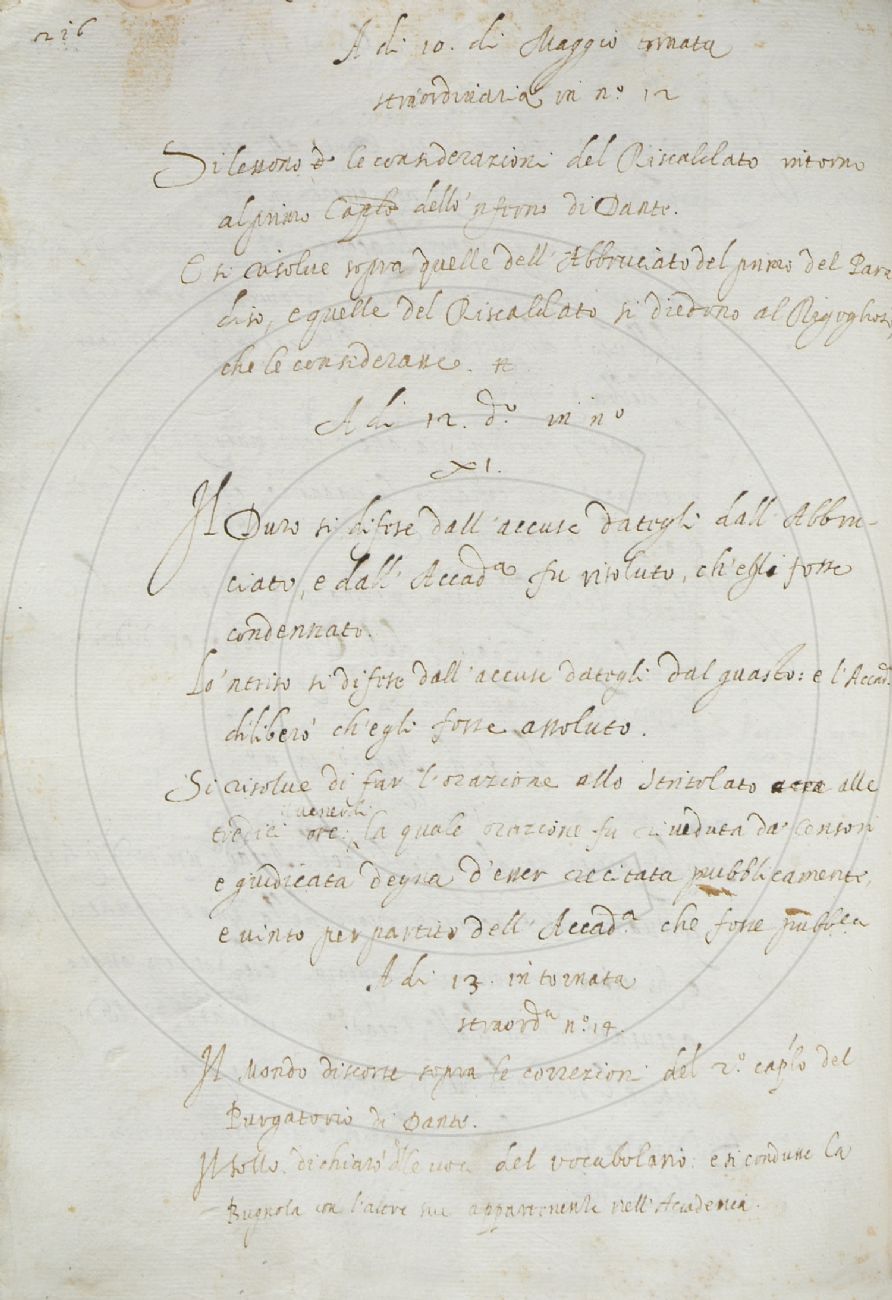 216
A di 10. di Maggio tornata
straordinaria in n.º 12
Si lessono le considerazioni del Riscaldato intorno
al primo Caplo dello 'nferno di Dante.
E si risolue sopra quelle dell' Abbruciato del primo del Para
diso, e quelle del Riscaldato si diedono al Rigoglioso,
che le considerasse.
A di 12. d.º in n.º
XI.
Il Duro si difese dall'accuse dategli dall' Abbru-
ciato, e dall' Accad.a fu risoluto, ch'egli fosse
condennato.
Lo 'ntriso si difese dall'accuse dategli dal guasto: e l'Accad.a
diliberò ch'egli fosse assoluto.
Si risolue di far l'orazione allo Stritolato alle
uenerdi
tredici ore: la quale orazione fu riueduta da' Censori
e giudicata degna d'esser recitata pubblicamente,
e uinto per partito dell' Accad.a che fosse pubb.ca
A di 13. in tornata
straord.a n.º 14.
Il Mondo discorse sopra le correzioni del 2.º caplo del
Purgatorio di Dante.
Il sollo dichiarò le uoci del vocabolario: e si condusse la
Bugnola con l'altre sue appartenenze nell'Accademia.